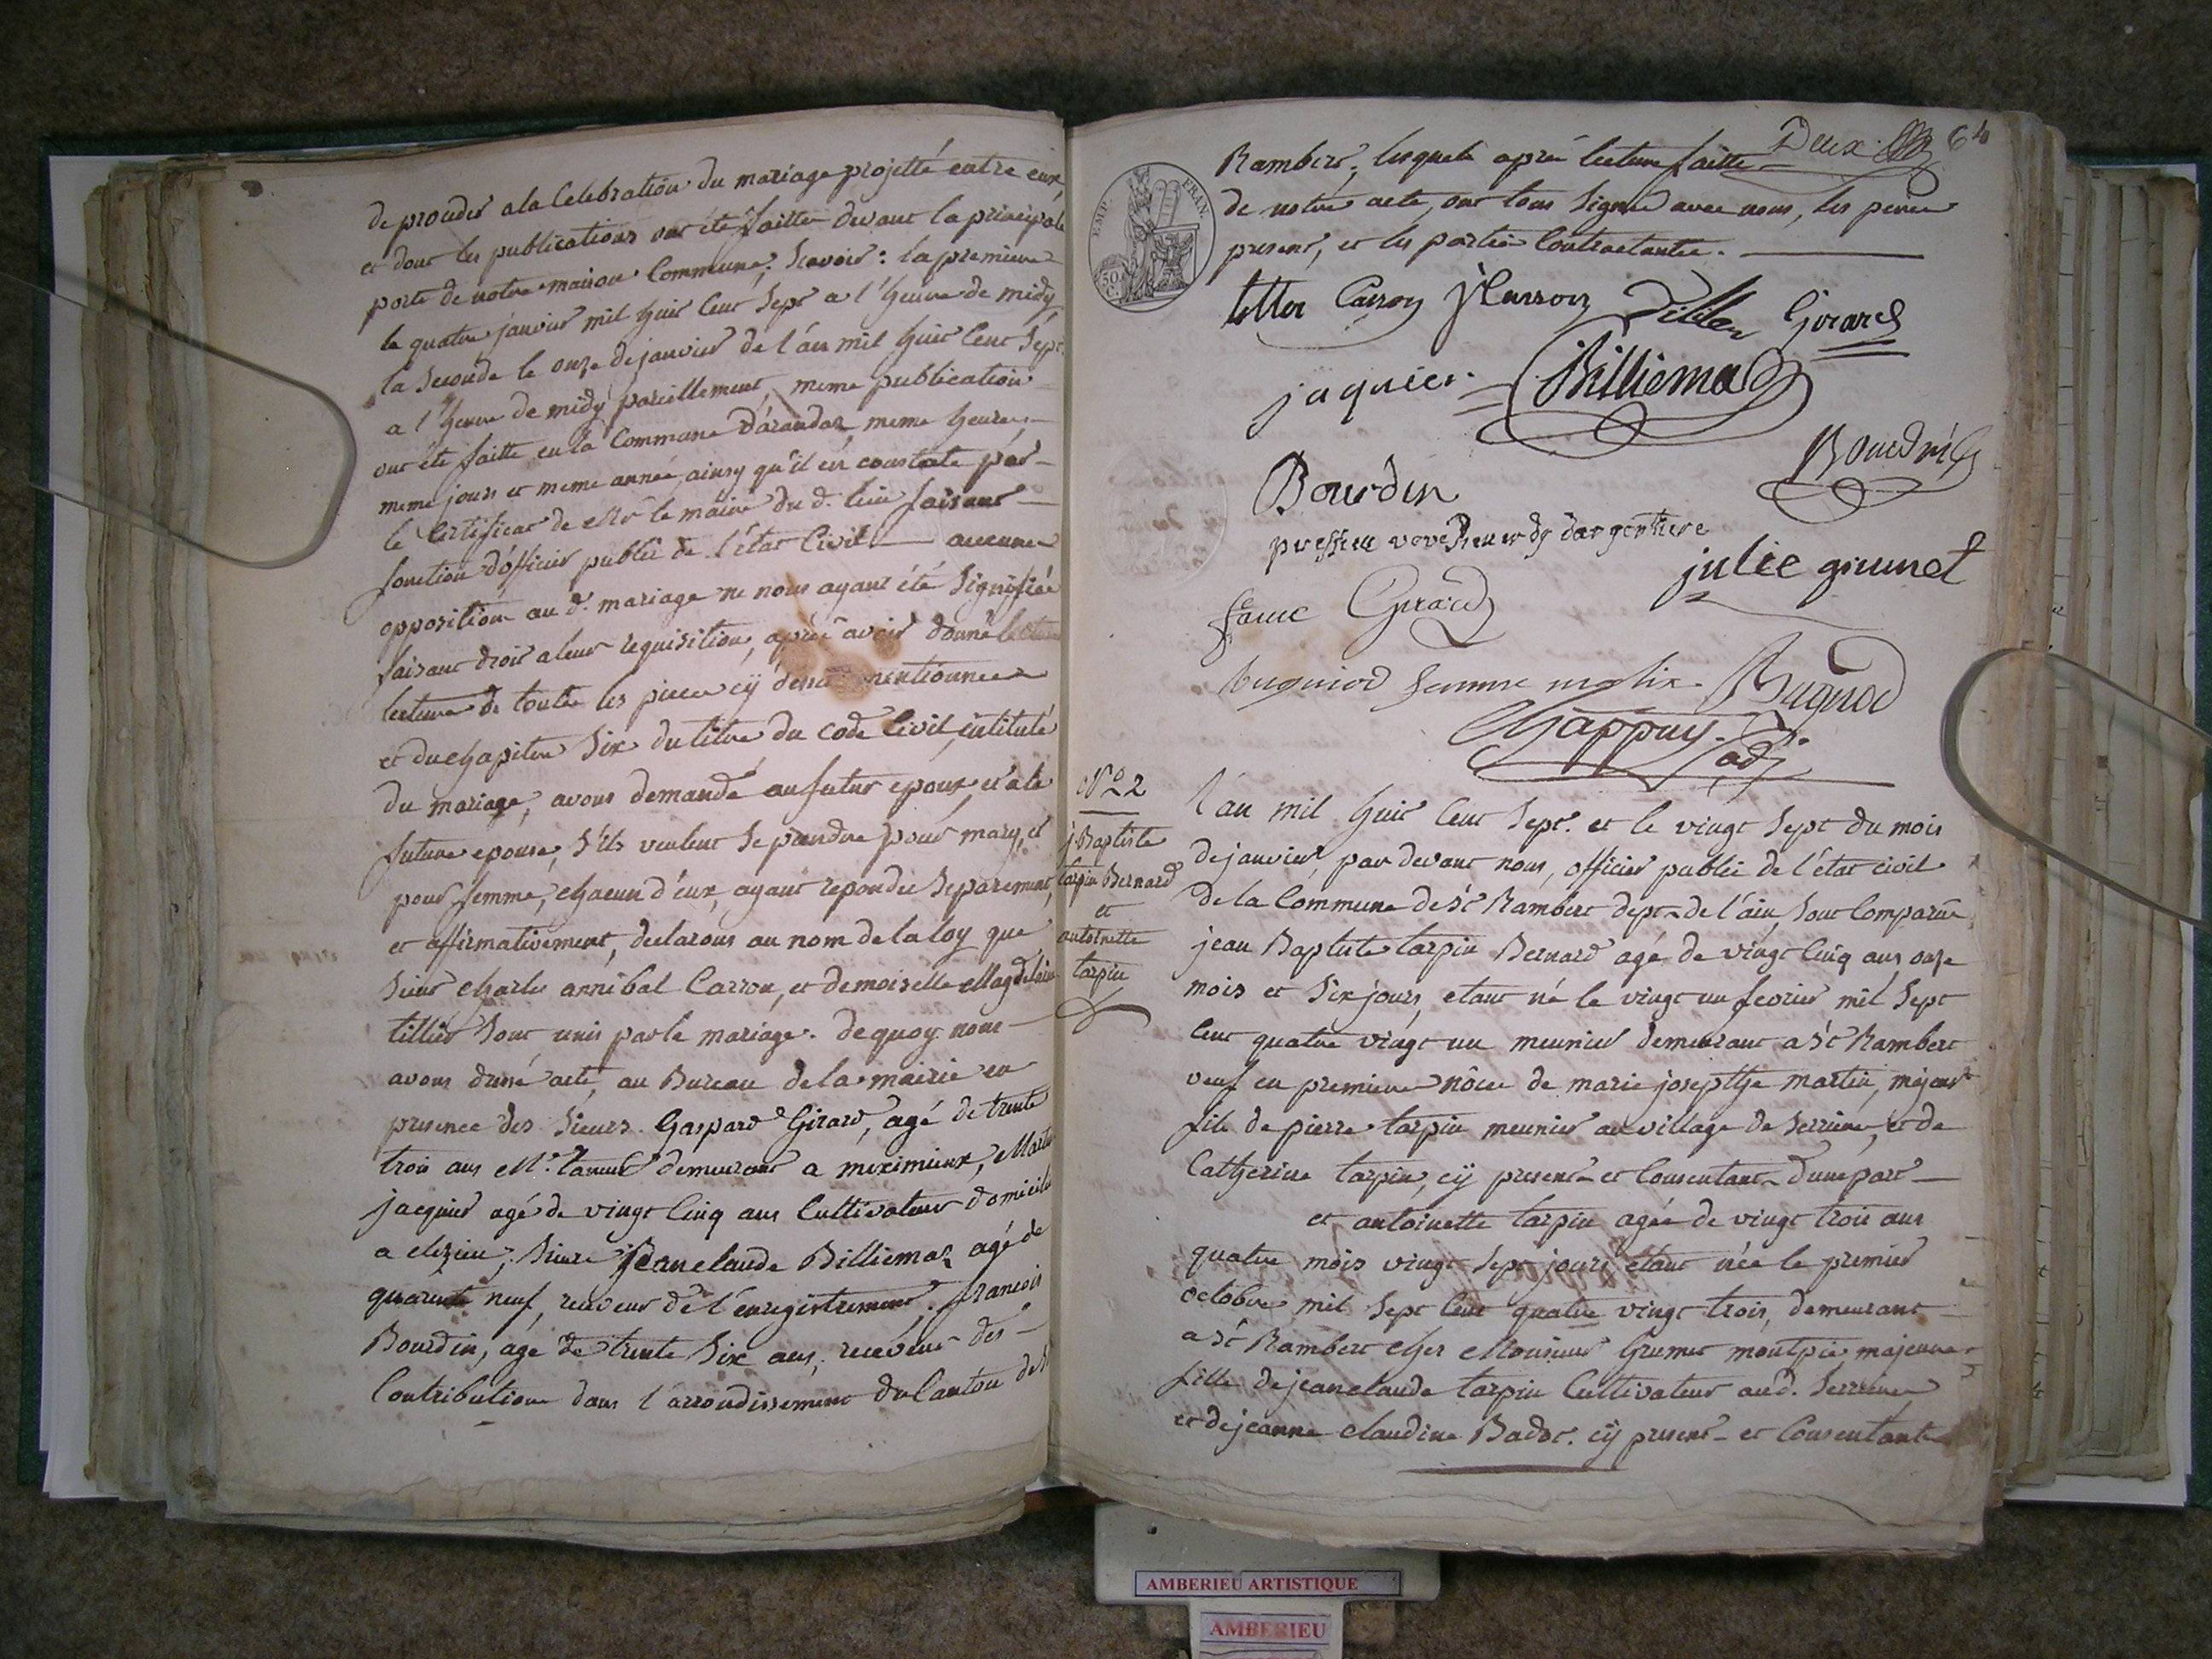 de proceder a la Celebration du mariage projetté entre eux
et dont les publications ont été faitte devant la principale
porte de notre maison Commune; Savoir: la premiere
le quatre janvier mil huit Cent Sept a l'heure de midy
la Seconde le onze de janvier de l'an mil huit Cent Sept
a l'heure de midy pareillement, meme publication
ont été faitte en la Commune D'arandas, meme heure,
meme jours et meme année, ainsy qu'il en constate par
le Certificat de Mr le maire du d. lieu faisant
fonction d'officier public de l'état Civil aucune
opposition au d. mariage ne nous ayant été Signifiée
faisant droit a leur requisition, après avoir donné lecture
lecture de toutte les pieces cÿ dessus mentionnees
et du chapitre Six du titre du code Civil intitulé
du mariage, avons demandé au futur epoux, et a la
future epouse, S'ils veulent Se prendre pour mary, et
pour femme, chacun d'eux, ayant repondu Separement,
et affirmativement, declarons au nom de la loy que
Sieur charles annibal Carron, et demoiselle Magdelaine
tillier Sont unis par le mariage. de quoy nous
avons dressé acte, au Bureau de la mairie en
presence des Sieurs Gaspard Girard, agé de trente
trois ans Mr. demeurant a meximieux, Martin
jacquier agé de vingt Cinq ans Cultivateur domicilié
a clezieu, Sieur jean claude Billiemaz agé de
quarente neuf, receveur de l'enregistrement, francois
Bourdin, agé de trente Six ans, receveur des
Contributions dans l'arrondissement du Canton de St
Deux 64
Rambert, lesquels après lecture faitte
de notre acte, ont tous Signé avec nous, les peres
present, et les parties Contractantes.
EMP. FRAN.
50 C.
Carron Girard
jaquier Billiemaz
Bourdin
dargentiere
julie grumet
Girard
femme Bugnod
Chappuy adj.
N° 2
j. Baptiste
tarpin Bernard
et
antoinette
tarpin
l'an mil huit Cent Sept. et le vingt Sept du mois
de janvier, par devant nous, officier public de l'état civil
de la Commune de St Rambert dept. de l'ain, Sont Comparus
jean Baptiste tarpin Bernard agé de vingt Cinq ans, onze
mois et Six jours, etant né le vingt un fevrier mil Sept
Cent quatre vingt un meunier demeurant a St Rambert
veuf en premiere nôce de marie josepthe martin, majeur
fils de pierre tarpin meunier au village de Serrieres, et de
Catherine tarpin, cÿ present et Consentant d'une part
et antoinette tarpin agée de vingt trois ans
quatre mois vingt Sept jours etant née le premier
octobre mil Sept Cent quatre vingt trois, demeurant
a St Rambert chez Monsieur Grumet montpie, majeure
fille de jean claude tarpin Cultivateur au d. Serrieres
et de jeanne claudine Badot. cÿ present et Consentante
AMBERIEU ARTISTIQUE
AMBERIEU